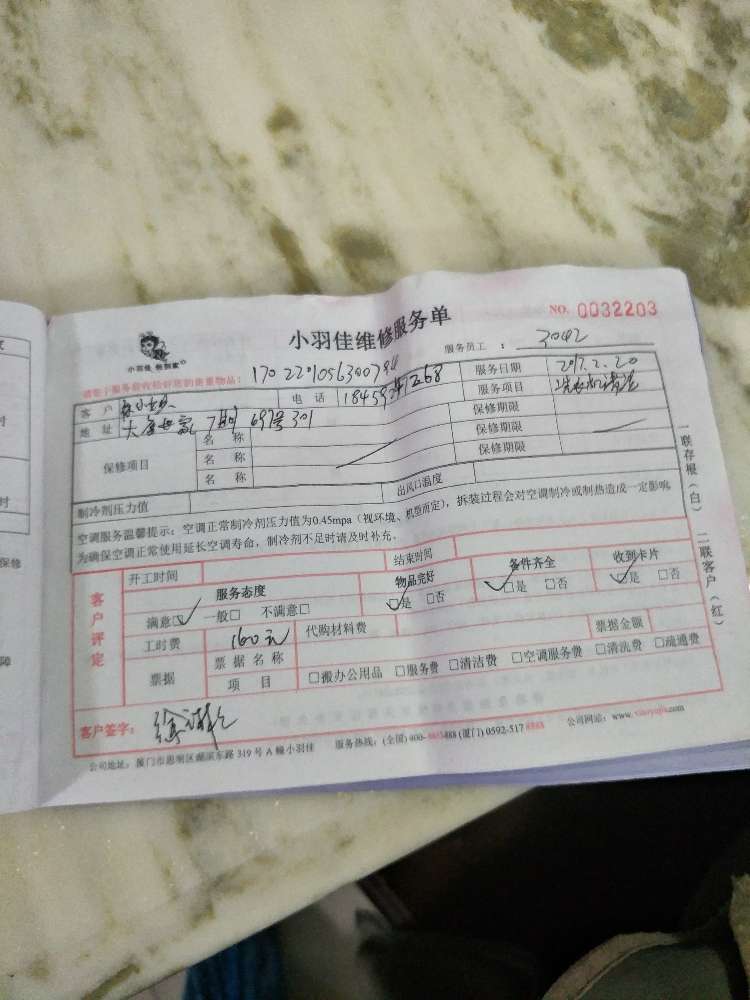 小羽佳维修服务单
NO. 0032203
小羽佳 抢到家
服务员工 : 3042
请您于服务前收拾好您的贵重物品:
客户 电话 服务日期 2017.2.20
地址 7期 697号301 服务项目 洗衣机清洗
保修项目 名称 保修期限
名称 保修期限
名称 保修期限
制冷剂压力值 出风口温度
空调服务温馨提示:空调正常制冷剂压力值为0.45mpa(视环境、机型而定),拆装过程会对空调制冷或制热造成一定影响
为确保空调正常使用延长空调寿命,制冷剂不足时请及时补充。
开工时间 结束时间
客户评定
服务态度 物品完好 备件齐全 收到卡片
满意☑ 一般□ 不满意□ ☑是 □否 ☑是 □否 ☑是 □否
工时费 160元 代购材料费 票据金额
票据 票据名称
项目 □搬办公用品 □服务费 □清洁费 □空调服务费 □清洗费 □疏通费
客户签字:
公司地址:厦门市思明区湖滨东路 319 号 A 幢小羽佳 服务热线:(全国) 400- (厦门) 0592-517 公司网站:www.xiaoyujia.com
一联存根(白) 二联客户(红)